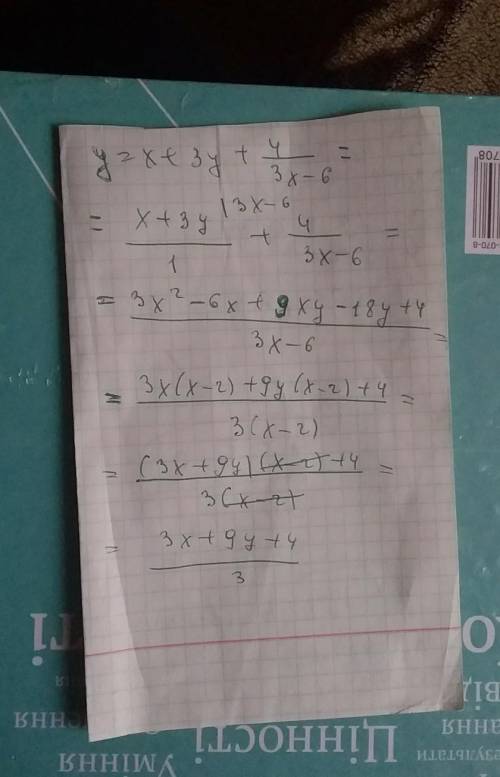 y = x + 3y + 4/(3x-6) =
= (x+3y)/1 |3x-6 + 4/(3x-6) =
= (3x² - 6x + 9xy - 18y + 4)/(3x-6) =
= (3x(x-2) + 9y(x-2) + 4)/(3(x-2)) =
= ((3x+9y)(x-2)+4)/(3(x-2)) =
= (3x+9y+4)/3
ЦІННОСТІ
Уміння
результати